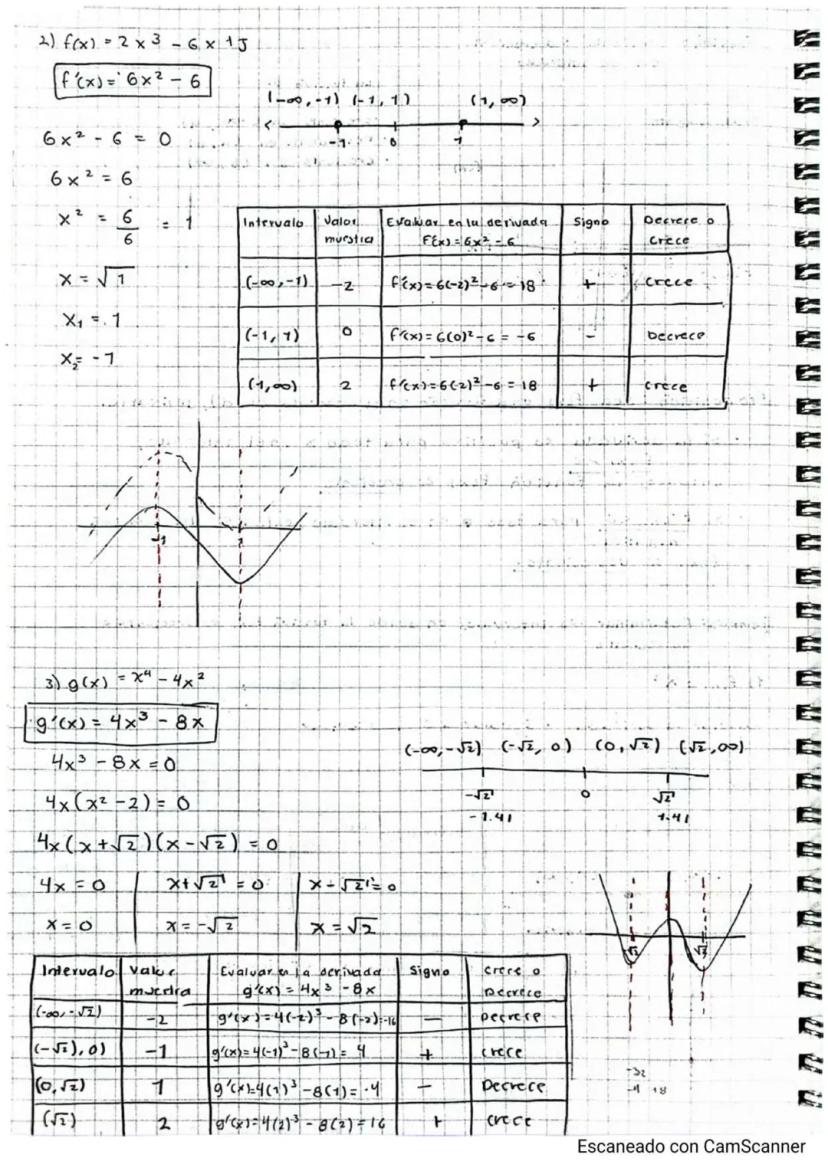 2) f(x) = 2x³ - 6x + 5
f'(x) = 6x² - 6
(-∞, -1) (-1, 1) (1, ∞)
-1 0 1
6x² - 6 = 0
6x² = 6
x² = 6/6 = 1
x = √1
x₁ = 1
x₂ = -1
Intervalo Valor muestra Evaluar en la derivada F'(x) = 6x² - 6 Signo Decrece o Crece
(-∞, -1) -2 f'(x) = 6(-2)² - 6 = 18 + Crece
(-1, 1) 0 f'(x) = 6(0)² - 6 = -6 - Decrece
(1, ∞) 2 f'(x) = 6(2)² - 6 = 18 + Crece
-1 1
3) g(x) = x⁴ - 4x²
g'(x) = 4x³ - 8x
4x³ - 8x = 0
4x(x² - 2) = 0
4x(x + √2)(x - √2) = 0
4x = 0 x + √2 = 0 x - √2 = 0
x = 0 x = -√2 x = √2
(-∞, -√2) (-√2, 0) (0, √2) (√2, ∞)
-√2 0 √2
-1.41 1.41
-√2 √2
Intervalo Valor muestra Evaluar en la derivada g'(x) = 4x³ - 8x Signo Crece o Decrece
(-∞, -√2) -2 g'(x) = 4(-2)³ - 8(-2) = -16 - Decrece
(-√2), 0) -1 g'(x) = 4(-1)³ - 8(-1) = 4 + Crece
(0, √2) 1 g'(x) = 4(1)³ - 8(1) = -4 - Decrece
(√2) 2 g'(x) = 4(2)³ - 8(2) = 16 + Crece
-32
Escaneado con CamScanner